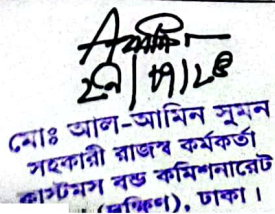 মোঃ আল-আমিন সুমন
সহকারী রাজস্ব কর্মকর্তা
কাস্টমস বন্ড কমিশনারেট
(দক্ষিণ), ঢাকা।